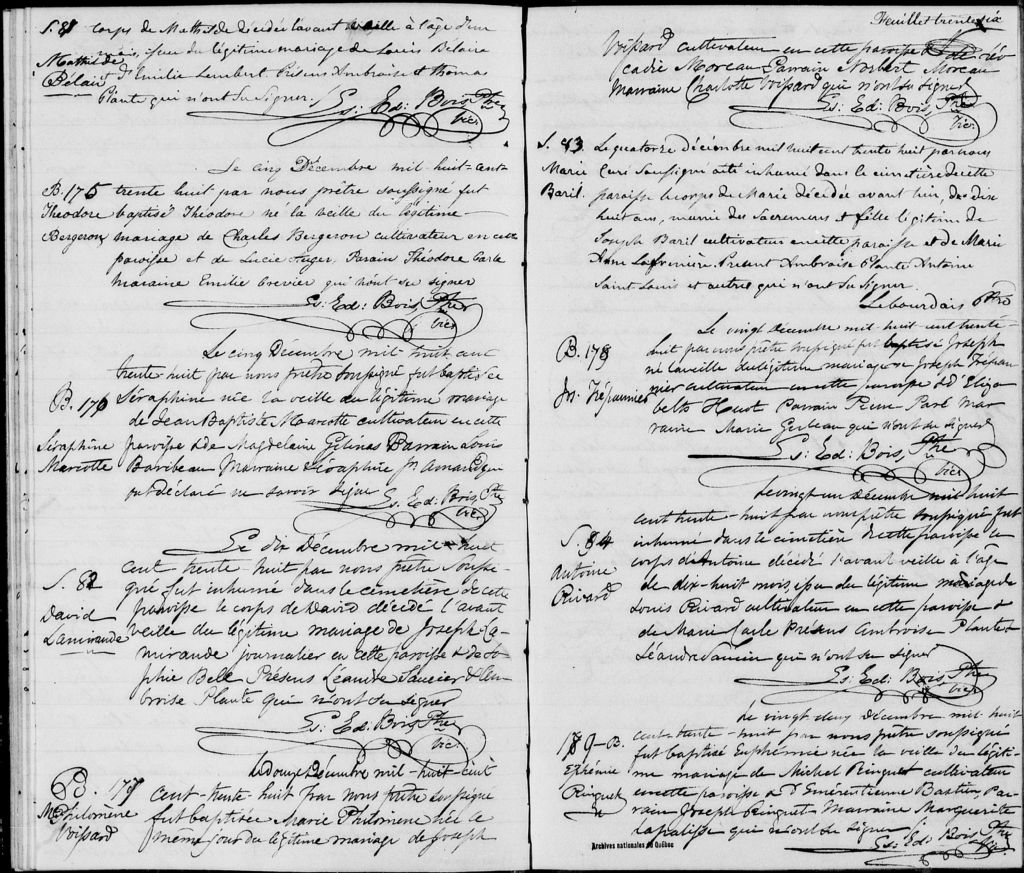 S. 81 corps de Mathilde décédée l'avant veille à l'âge d'un
Mathilde mois, issue du légitime mariage de Louis Belair
Belair & d'Emilie Lambert. Présens Ambroise & Thomas
Plante qui n'ont su signer.
Ls: Ed: Bois, Ptre
Vic.
Le cinq Décembre mil-huit-cent-
B. 175 trente huit, par nous prêtre soussigné fut
Théodore baptisé Théodore né la veille du légitime
Bergeron mariage de Charles Bergeron cultivateur en cette
paroisse et de Lucie Auger. Parain Théodore Carle
maraine Emilie Crevier qui n'ont su signer
Ls: Ed: Bois, Ptre
Vic.
Le cinq Décembre mil-huit cent
trente-huit par nous prêtre soussigné fut baptisée
B. 176 Séraphine née la veille du légitime mariage
de Jean Baptiste Marcotte cultivateur en cette
Séraphine paroisse & de Magdelaine Gelinas Parrain Louis
Marcotte Baribeau Marraine Séraphine St. Amand qui
ont déclaré ne savoir signer
Ls: Ed: Bois, Ptre
Vic.
Le dix Décembre mil-huit
cent trente-huit par nous prêtre soussi-
S. 82 gné fut inhumé dans le cemetière de cette
paroisse le corps de David décédé l'avant
David veille du légitime mariage de Joseph La-
Lamirande mirande journalier en cette paroisse & de So-
phie Bell Présens Léandre Saucier & Am-
broise Plante qui n'ont su signer
Ls: Ed: Bois, Ptre
Vic.
Le douze Décembre mil-huit-cent
B. 177 cent-trente-huit par nous prêtre soussigné
M. Philomène fut baptisée Marie Philomène née le
Voissard même jour du légitime mariage de Joseph
Feuillet trente six
Voissard cultivateur en cette paroisse & de Léo
cadie Moreau Parrain Norbert Moreau
Marraine Charlotte Voissard qui n'ont su signer
Ls: Ed: Bois, Ptre
Vic.
S. 83 Le quatorze décembre mil huit cent trente huit par nous
Marie Curé Soussigné a été inhumé dans le cimetière de cette
Baril. paroisse le corps de Marie décédée avant hier, de dix
huit ans, munie des Sacremens & fille légitime de
Joseph Baril cultivateur en cette paroisse et de Marie
Anne Lafrenière. Présent Ambroise Plante Antoine
Saint Louis et autres qui n'ont su signer.
Lebourdais Ptre
Le vingt Décembre mil-huit-cent trente-
B. 178 huit par nous prêtre soussigné fut baptisé Joseph
né la veille du légitime mariage de Joseph Trépan-
Js. Trépannier nier cultivateur en cette paroisse & d'Eliza
beth Huot Parrain Pierre Paré Mar
raine Marie Gerbeau qui n'ont su signer
Ls: Ed: Bois, Ptre
Vic.
Le vingt un Décembre mil huit
cent trente-huit par nous prêtre soussigné fut
S. 84 inhumé dans le cimetière de cette paroisse le
Antoine corps d'Antoine décédé l'avant veille à l'âge
Rivard de dix-huit mois, issu du légitime mariage de
Louis Rivard cultivateur en cette paroisse &
de Marie Carle Présens Ambroise Plante &
Léandre Saucier qui n'ont su signer
Ls: Ed: Bois, Ptre
Vic.
Le vingt deux Décembre mil-huit
179-B. cent-trente-huit par nous prêtre soussigné
fut baptisé Euphémie née la veille du légiti-
Ephémie me mariage de Michel Ringuet cultivateur
Ringuet en cette paroisse & d'Emérentienne Bastien, Par-
rain Joseph Ringuet Marraine Marguerite
Lapalisse qui n'ont su signer
Ls: Ed: Bois Ptre
Vic.
Archives nationales du Québec